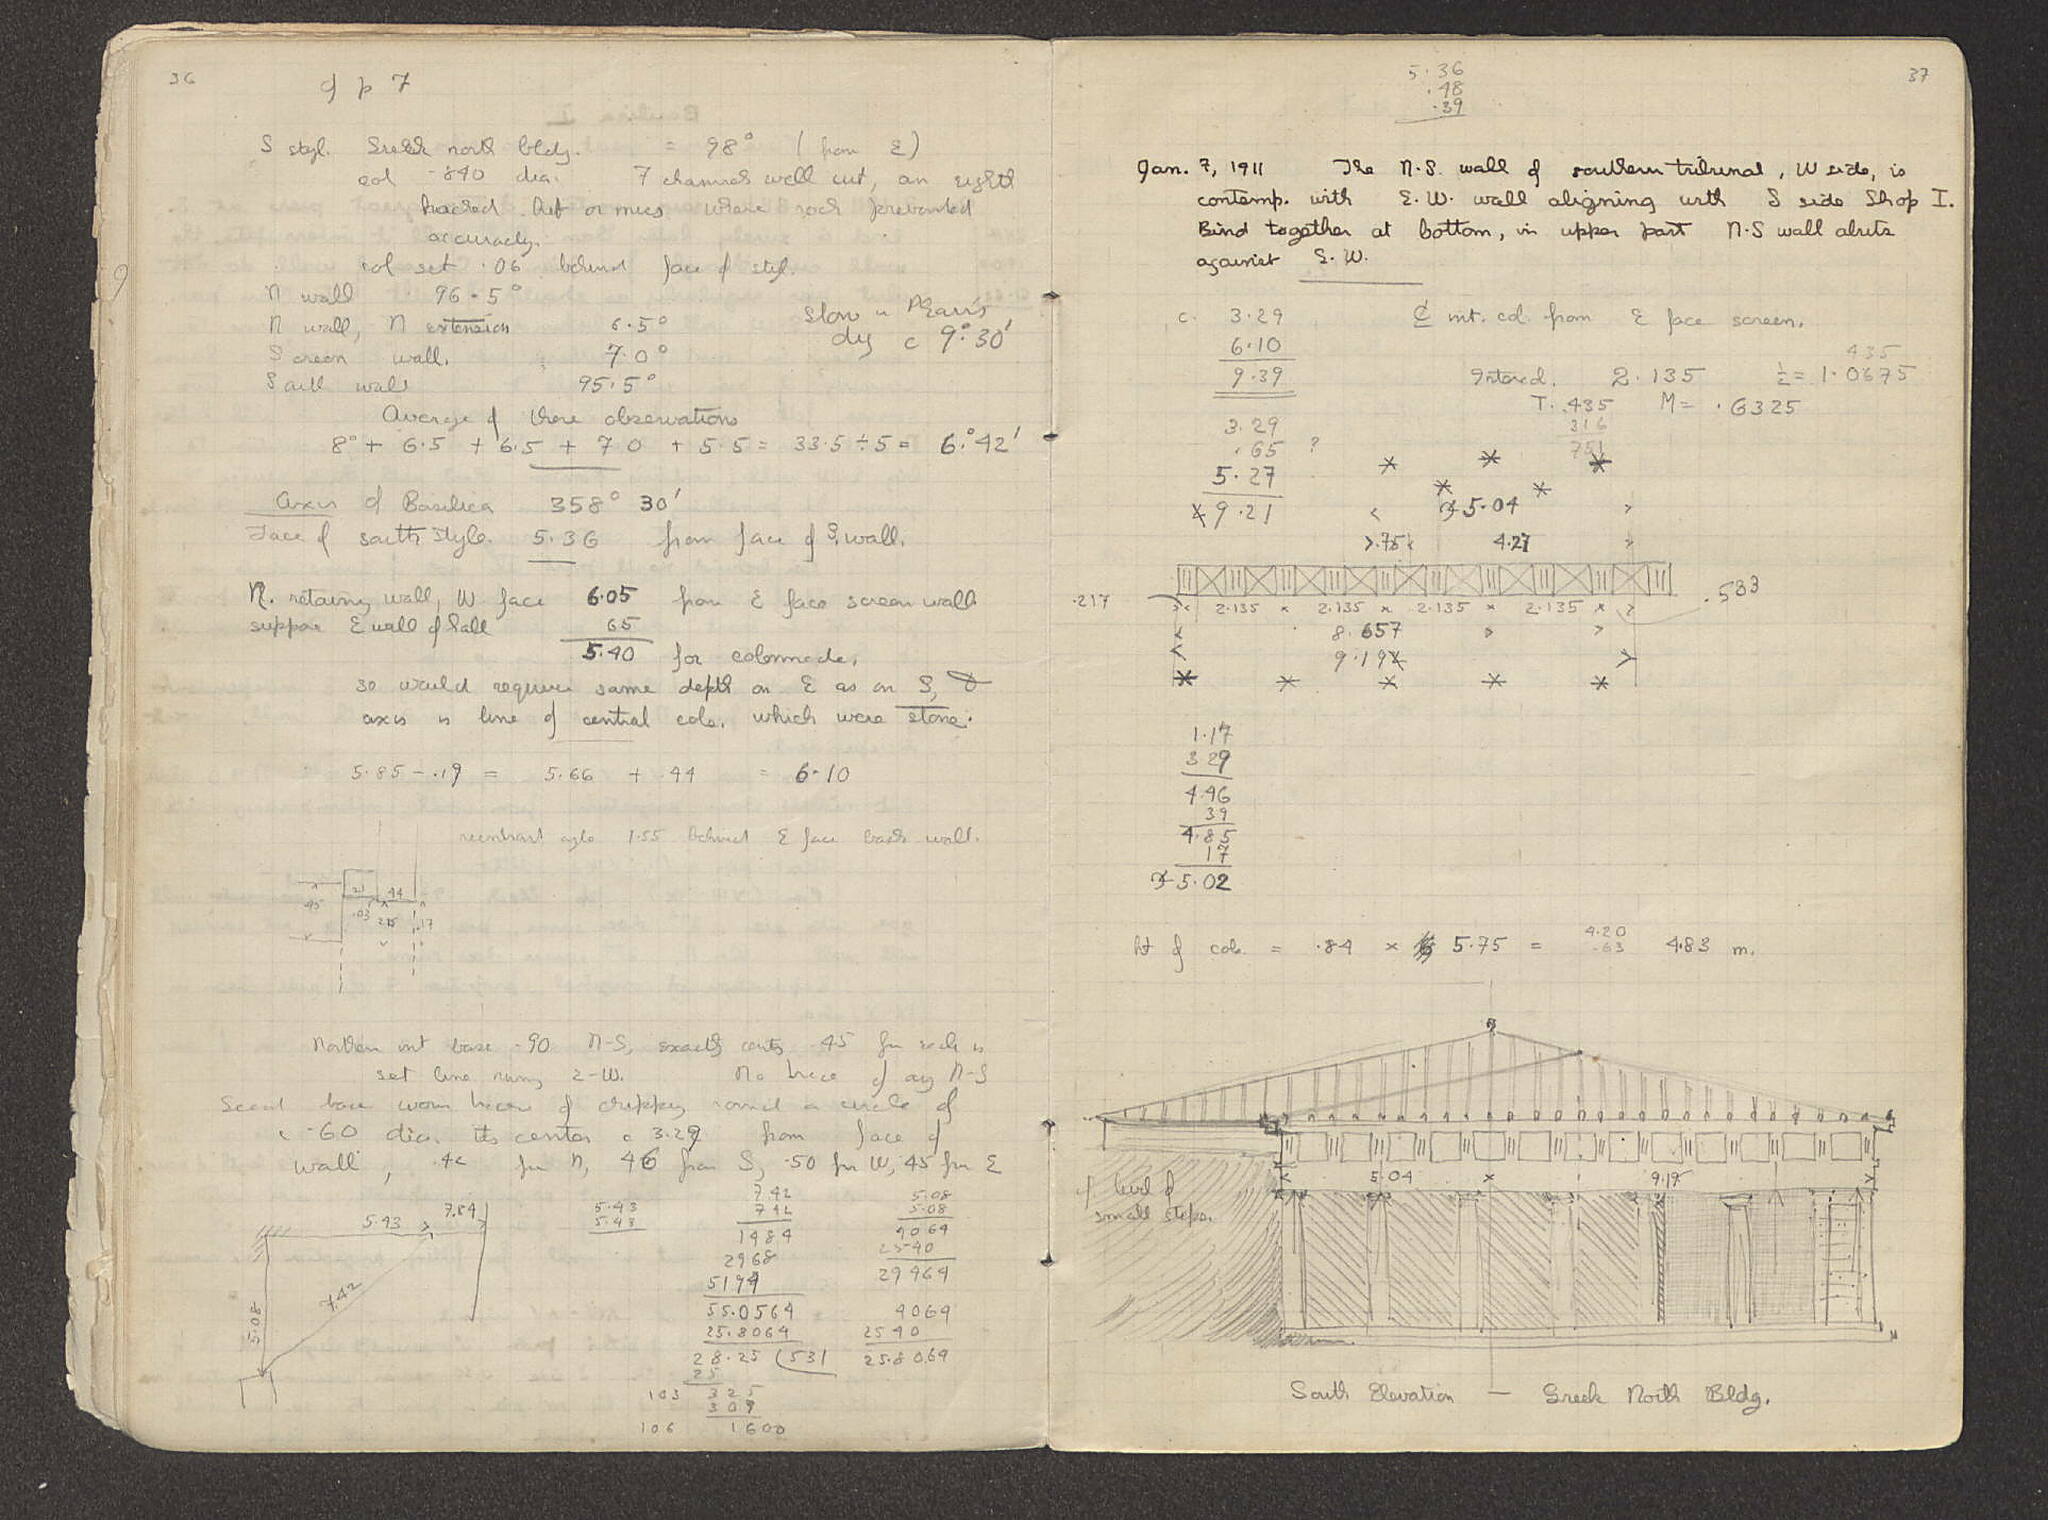 36
cf p 7
S styl. Greek north bldg. = 98° (from E)
col .840 dia. 7 channels well cut, an eighth
hacked where rock prevented
accuracy.
col set .06 behind face of styl.
N wall 96.5°
N wall, N extension 6.5°
Screen wall. 7.0°
South wall 95.5°
Stow in N Earis
dg c 9°.30'
Average of these observations
8° + 6.5 + 6.5 + 7.0 + 5.5 = 33.5 ÷ 5 = 6.°42'
Axis of Basilica 358° 30'
Face of south style. 5.36 from face of S. wall.
N. retaining wall, W face 6.05 from E face screen wall
suppose E wall of hall 65
5.40 for colonnade.
so would require same depth on E as on S, &
axis is line of central cols. which were stone.
5.85 - .19 = 5.66 + .44 = 6.10
reentrant angle 1.55 behind E face back wall.
.45 21 44
.03 2.15 .17
Northern int base .90 N-S, exactly .45 for each is
set line running E-W. No trace of any N-S
Second base worn traces of chipping round a circle of
c .60 dia. its center c 3.29 from face of
wall, .4c fr N, 46 from S, .50 fr W, 45 fr E
5.43 7.84
5.08 7.42
5.43
5.43
7.42
742
1484
2968
5194
55.0564
25.8064
28.25 (531
25
103 325
309
106 1600
5.08
5.08
4064
2540
29464
4064
2540
25.8064
37
5.36
.48
.39
Jan. 7, 1911 The N.S. wall of southern tribunal, W side, is
contemp. with E.W. wall aligning with S side Shop I.
Bind together at bottom, in upper part N.S wall abuts
against E.W.
c. 3.29 ₵ int. col. from E face screen.
6.10
9.39
Intercol. 2.135 ½ = 1.0675
435
T. .435 M = .6325
316
751
3.29
.65 ?
5.27
9.21
5.04
.75 4.27
.217 2.135 × 2.135 × 2.135 × 2.135 × .533
8.657
9.19
1.17
3 29
4.46
39
4.85
17
5.02
ht of col. = .84 × 5.75 = 4.20 .63 4.83 m.
5.04 × 9.19
level of
small steps.
South Elevation — Greek North Bldg.